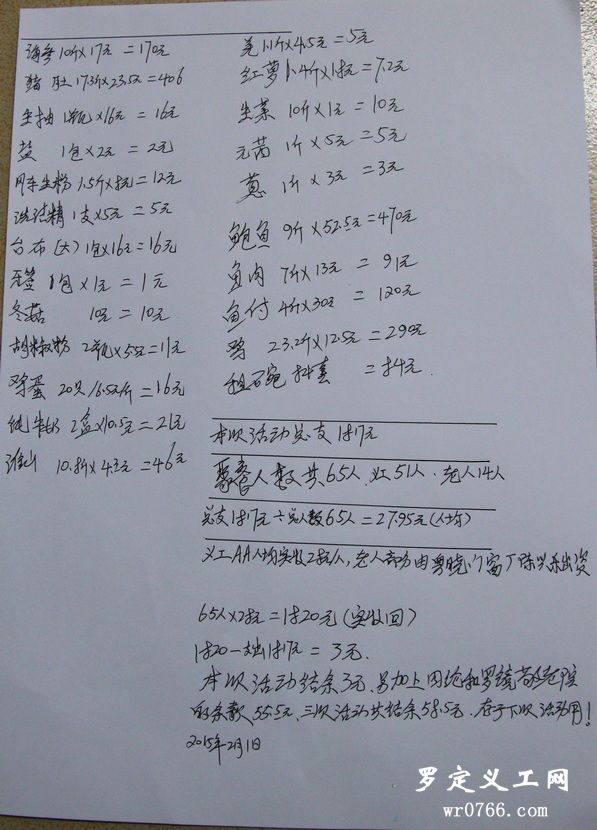 海参 10斤×17元 = 170元
猪肚 17.3斤×23.5元 = 406
生抽 1瓶×16元 = 16元
盐 1包×2元 = 2元
风车生粉 1.5斤×8元 = 12元
洗洁精 1支×5元 = 5元
台布(大) 1包×16元 = 16元
牙签 1包×1元 = 1元
冬菇 10元 = 10元
胡椒粉 2瓶×5.5元 = 11元
鸡蛋 20只/6.5元/斤 = 16元
纯牛奶 2盒×10.5元 = 21元
淮山 10.8斤×4.3元 = 46元
姜 1.1斤×4.5元 = 5元
红萝卜 4斤×1.8元 = 7.2元
生菜 10斤×1元 = 10元
元茜 1斤×5元 = 5元
葱 1斤×3元 = 3元
鲍鱼 9斤×52.5元 = 470元
鱼肉 7斤×13元 = 91元
鱼付 4斤×30元 = 120元
鸡 23.2斤×12.5元 = 290元
租碗 14套 = 84元
本次活动总支1817元
聚餐人数共65人、义工51人、老人14人
总支1817元÷总人数65人 = 27.95元(人均)
义工AA人均实收28元/人,老人部分由
出资
65人×28元 = 1820元(实收回)
1820 - 支出1817元 = 3元.
本次活动结余3元,另加上
的余款55.5元,三次活动共结余58.5元、存于下次活动用!
2015年2月1日
罗定义工网
wr0766.com